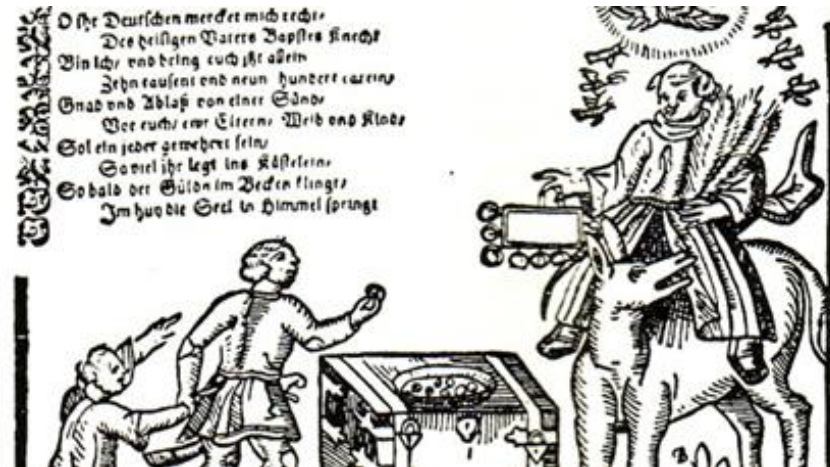 O Ihr Deutschen mercket mich recht/
Des heiligen Vaters Bapstes Knecht
Bin Ich/ vnd bring euch itzt allein
Zehn tausent vnd neun hundert carein/
Gnad vnd Ablaß von einer Sünd/
Vor euch/ ewr Eltern/ Weib vnd Kind/
Sol ein jeder gewehret sein/
So viel ihr legt ins Kästelein/
So bald der Gülden im Becken klingt/
Im huy die Seel in Himmel springt